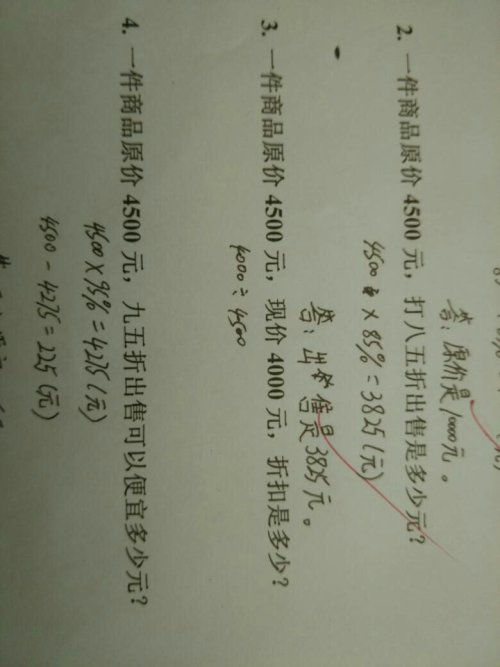 答：原价是10000元。
2. 一件商品原价4500元，打八五折出售是多少元？
4500 × 85% = 3825（元）
答：出售价是3825元。
3. 一件商品原价4500元，现价4000元，折扣是多少？
4000 ÷ 4500
4. 一件商品原价4500元，九五折出售可以便宜多少元？
4500 × 95% = 4275（元）
4500 - 4275 = 225（元）